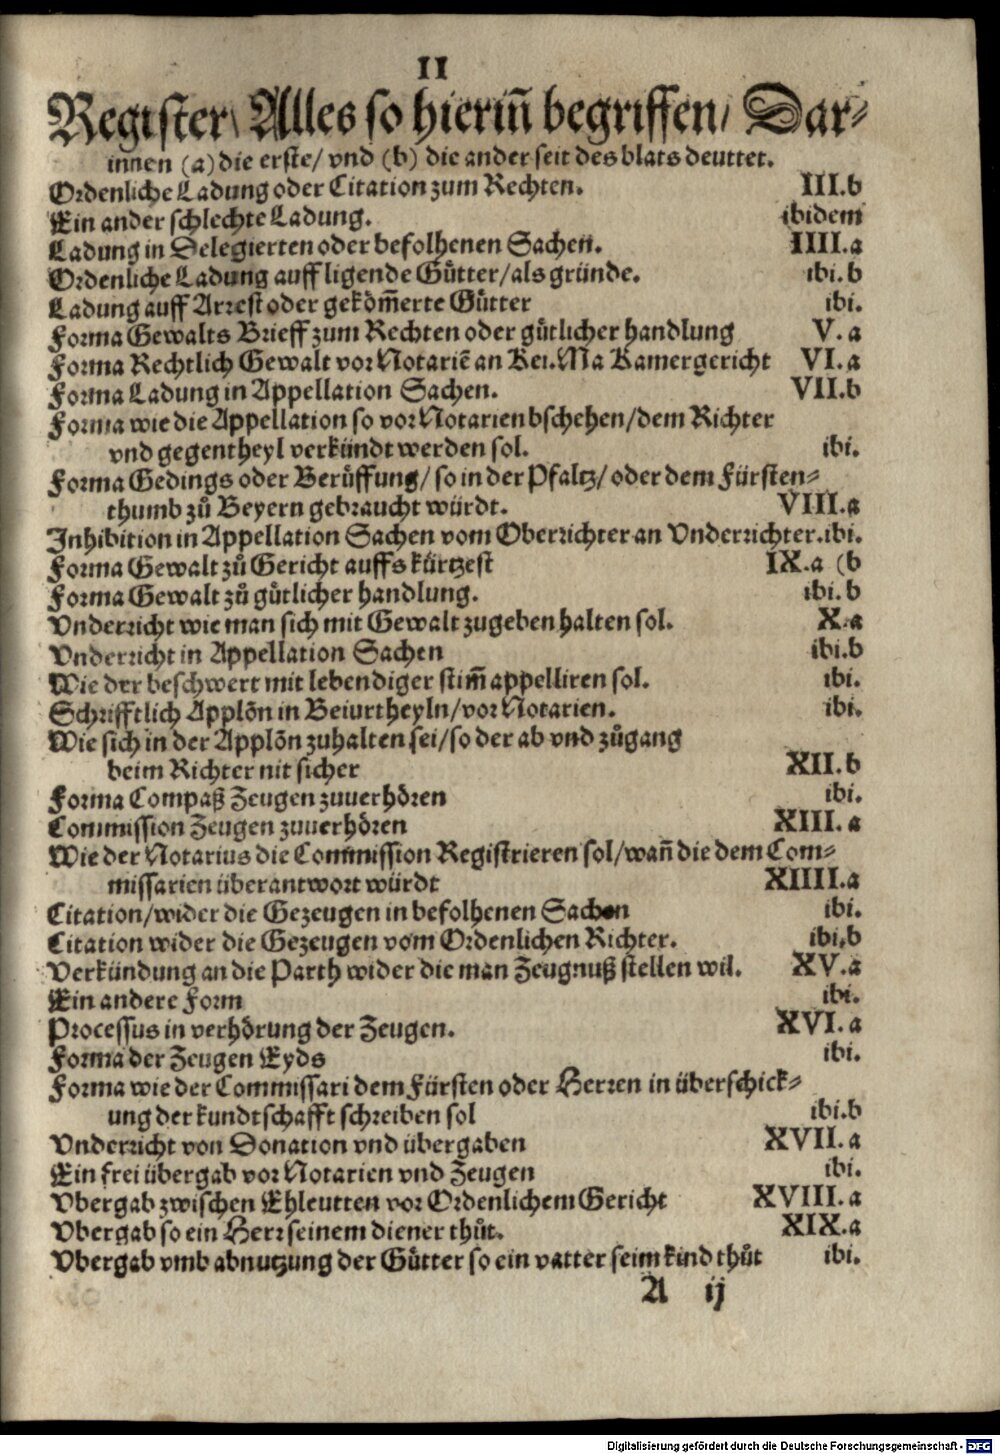 II
Register\ Alles so hieriñ begriffen/ Dar⸗
innen (a) die erste/ vnd (b) die ander seit des blats deuttet.
Ordenliche Ladung oder Citation zum Rechten. III.b
Ein ander schlechte Ladung. ibidem
Ladung in Delegierten oder befolhenen Sachen. IIII.a
Ordenliche Ladung auff ligende Gůtter/als gründe. ibi.b
Ladung auff Arrest oder gekom̃erte Gůtter ibi.
Forma Gewalts Brieff zum Rechten oder gůtlicher handlung V.a
Forma Rechtlich Gewalt vor Notariẽ an Kei.Ma Kamergericht VI.a
Forma Ladung in Appellation Sachen. VII.b
Forma wie die Appellation so vor Notarien bschehen/dem Richter
vnd gegentheyl verkündt werden sol. ibi.
Forma Gedings oder Berůffung/ so in der Pfaltz/ oder dem Fürsten⸗
thumb zů Beyern gebraucht würdt. VIII.a
Inhibition in Appellation Sachen vom Oberrichter an Vnderrichter.ibi.
Forma Gewalt zů Gericht auffs kürtzest IX.a (b
Forma Gewalt zů gůtlicher handlung. ibi.b
Vnderricht wie man sich mit Gewalt zugeben halten sol. X.a
Vnderricht in Appellation Sachen ibi.b
Wie der beschwert mit lebendiger stim̃ appelliren sol. ibi.
Schrifftlich Applõn in Beiurtheyln/vor Notarien. ibi.
Wie sich in der Applõn zuhalten sei/so der ab vnd zůgang
beim Richter nit sicher XII.b
Forma Compaß Zeugen zuuerhören ibi.
Commission Zeugen zuuerhören XIII.a
Wie der Notarius die Commission Registrieren sol/wañ die dem Com⸗
missarien überantwort würdt XIIII.a
Citation/wider die Gezeugen in befolhenen Sachen ibi.
Citation wider die Gezeugen vom Ordenlichen Richter. ibi.b
Verkündung an die Parth wider die man Zeugnuß stellen wil. XV.a
Ein andere Form ibi.
Processus in verhörung der Zeugen. XVI.a
Forma der Zeugen Eyds ibi.
Forma wie der Commissari dem Fürsten oder Herren in überschick⸗
ung der kundtschafft schreiben sol ibi.b
Vnderricht von Donation vnd übergaben XVII.a
Ein frei übergab vor Notarien vnd Zeugen ibi.
Vbergab zwischen Ehleutten vor Ordenlichem Gericht XVIII.a
Vbergab so ein Herr seinem diener thůt. XIX.a
Vbergab vmb abnutzung der Gůtter so ein vatter seim kind thůt ibi.
A ij
Digitalisierung gefördert durch die Deutsche Forschungsgemeinschaft - DFG